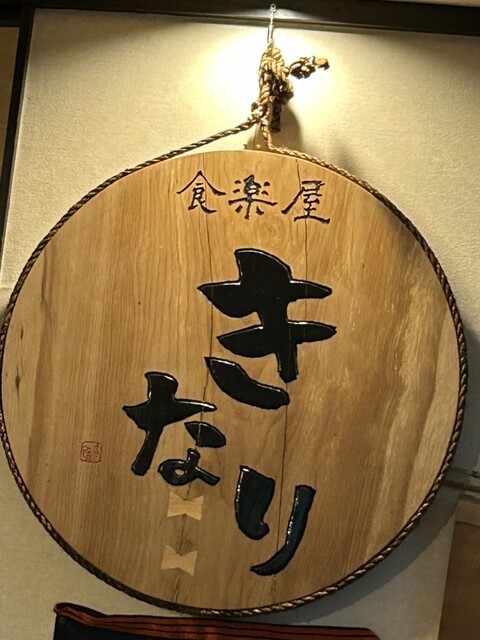 食楽屋
きなり